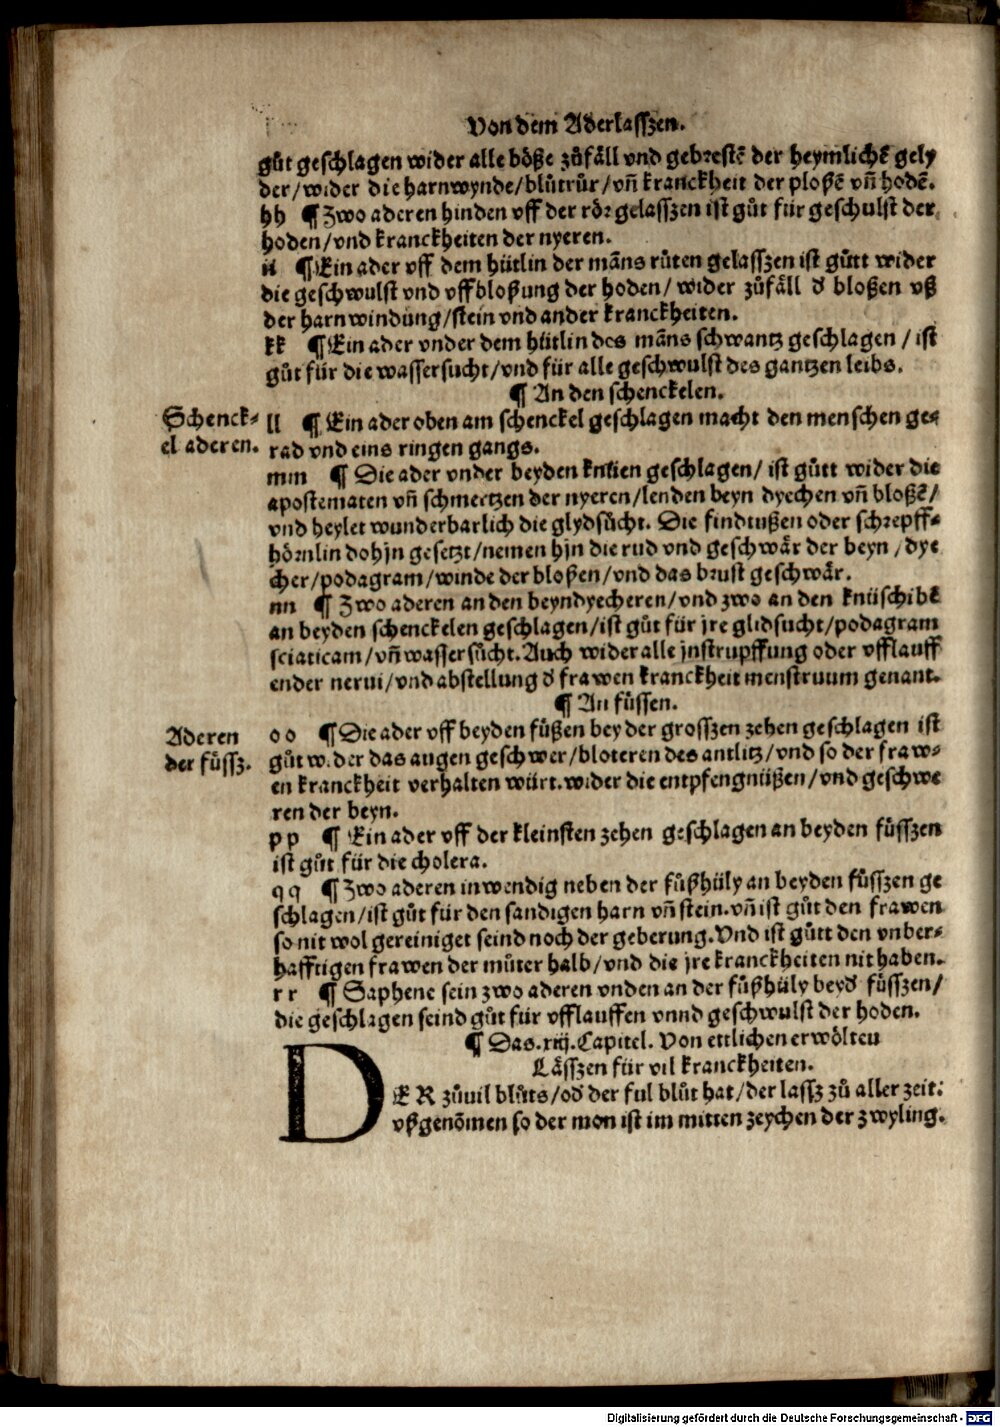 Von dem Aderlasszen.
gůt geschlagen wider alle böße zůfåll vnd gebrestē der heymlichē gely
der/wider die harnwynde/blůtrůr/vñ kranckheit der ploßē vñ hodē.
hh ¶ Zwo aderen hinden vff der rör gelasszen ist gůt für geschulst der
hoden/vnd kranckheiten der nyeren.
ii ¶ Ein ader vff dem hütlin der mãns růten gelasszen ist gůtt wider
die geschwulst vnd vffbloßung der hoden/ wider zůfåll d̄ bloßen vß
der harnwindung/stein vnd ander kranckheiten.
kk ¶ Ein ader vnder dem hütlin des mãns schwantz geschlagen / ist
gůt für die wassersucht/vnd für alle geschwulst des gantzen leibs.
¶ An den schenckelen.
Schenck-
el aderen.
ll ¶ Ein ader oben am schenckel geschlagen macht den menschen ge-
rad vnd eins ringen gangs.
mm ¶ Die ader vnder beyden knüen geschlagen/ ist gůtt wider die
apostematen vñ schmertzen der nyeren/lenden beyn dyechen vñ bloßē/
vnd heylet wunderbarlich die glydsůcht. Die findtußen oder schrepff-
hörnlin dohjn gesetzt/nemen hjn die rud vnd geschwår der beyn / dye
cher/podagram/winde der bloßen/vnd das brust geschwår.
nn ¶ Zwo aderen an den beyndyecheren/vnd zwo an den knüschibē
an beyden schenckelen geschlagen/ist gůt für jre glidsucht/podagram
sciaticam/vñ wassersůcht. Auch wider alle jnstrupffung oder vfflauff
ender nerui/vnd abstellung d̄ frawen kranckheit menstruum genant.
¶ An füssen.
Aderen
der füssz.
oo ¶ Die ader vff beyden füßen bey der grosszen zehen geschlagen ist
gůt wider das augen geschwer/bloteren des antlitz/vnd so der fraw-
en kranckheit verhalten würt. wider die entpfengnüßen/vnd geschwe
ren der beyn.
pp ¶ Ein ader vff der kleinsten zehen geschlagen an beyden füsszen
ist gůt für die cholera.
qq ¶ Zwo aderen inwendig neben der fůßhüly an beyden füsszen ge
schlagen/ist gůt für den sandigen harn vñ stein. vñ ist gůt den frawen
so nit wol gereiniget seind noch der geberung. Vnd ist gůtt den vnber-
hafftigen frawen der můter halb/vnd die jre kranckheiten nit haben.
rr ¶ Saphene sein zwo aderen vnden an der fůßhüly beyd̄ füsszen/
die geschlagen seind gůt für vfflauffen vnnd geschwulst der hoden.
¶ Das .xiij. Capitel. Von ettlichen erwölten
Lässzen für vil kranckheiten.
DER zůuil blůts/od̄ der ful blůt hat/der lassz zů aller zeit:
vßgenõmen so der mon ist im mitten zeychen der zwyling.
Digitalisierung gefördert durch die Deutsche Forschungsgemeinschaft - DFG